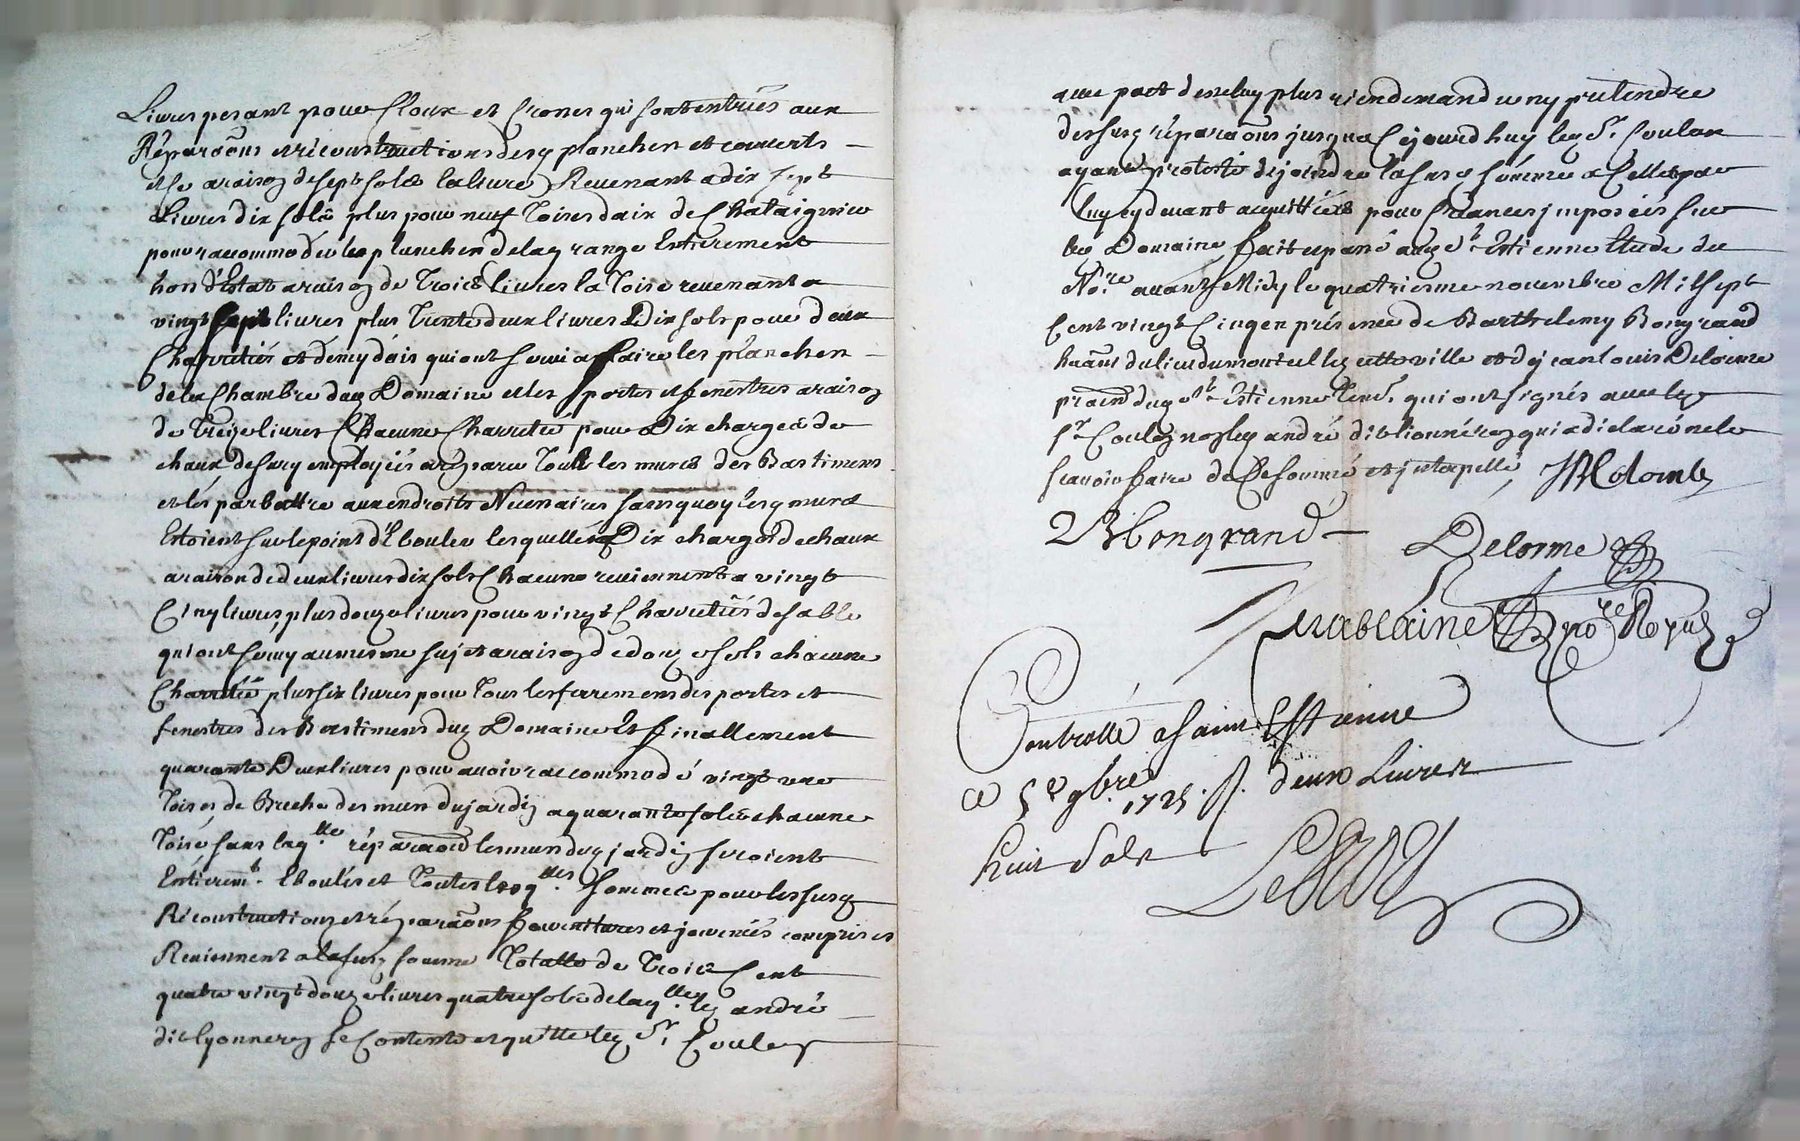 Livres pesant pour Cloux et Crones qui sont entrés aux
Réparaõns et réconstructions desd planchers et couverts
et ce a raison de sept sols la livre Revenant a dix sept
Livres dix sols plus pour neuf Toises daix de Chataignier
pour racommoder les planchers de lad grange Entierement
hors d'Estat a raison de Trois livres la Toise revenant a
vingt sept livres plus Trente deux livres Dix sols pour deux
Charretiés et demy dais qui ont servi a faire les planchers
de la Chambre dud Domaine et les portes et fenestres a raison
de Treize livres Chacune Charretié pour Dix charges de
chaux de fary employées a réparer Touts les murs des Bastimens
et les parbattre aux endroits Necessaires sans quoy lesd murs
Estoient sur le point d'Ebouler lesquelles Dix charges de chaux
a raison de deux livres dix sols Chacune reviennent a vingt
Cinq livres, plus douze livres pour vingt Charretiés de sable
qui ont servy au mesme sujet a raison de douze sols chacune
Charretié plus six livres pour Tous les ferremens des portes et
fenestres des Bastimens dud Domaine Et finallement
quarante Deux livres pour avoir raccommodé vingt une
Toises de Breche des murs du jardin a quarante sols chacune
Toise sans laqlle réparaõn les murs dud jardin seroient
Entieremt Eboulés et Toutes lesqlles sommes pour les susd
Réconstructions et réparaõns fournitures et journées comprises
Reviennent a la susd somme Totalle de Trois Cent
quatre vingt douze livres quatre sols de laqlle led andré
dit lyonneron se Contente et quitte led Sr Coulon
avec pact de ne luy plus rien demander ny prétendre
desd réparaõns jusqua Cejourdhuy led Sr Coulon
ayant protesté de joindre la susd somme a Celles par
luy cy devant acquittées pour Charges jmposées sur
le Domaine fait et passé aud St Estienne Etude du
Nore avant Midy le quatriesme novembre Mil sept
Cent vingt Cinq en présence de Barthelemy Bongrand
habant du lieu du monteil lez cette ville et de jean louis Delorme
praēn dud St Estienne Temd qui ont signés avec led
Sr Coulon non led andré dit lionneron qui a declaré ne le
scavoir faire de Ce sommé et jnterpellé,
BBongrand
Delorme
nore Royal
Controllé a Saint Estienne
ce 5e 9bre 1725. R. deux Livres
huit Sols
LeRoy